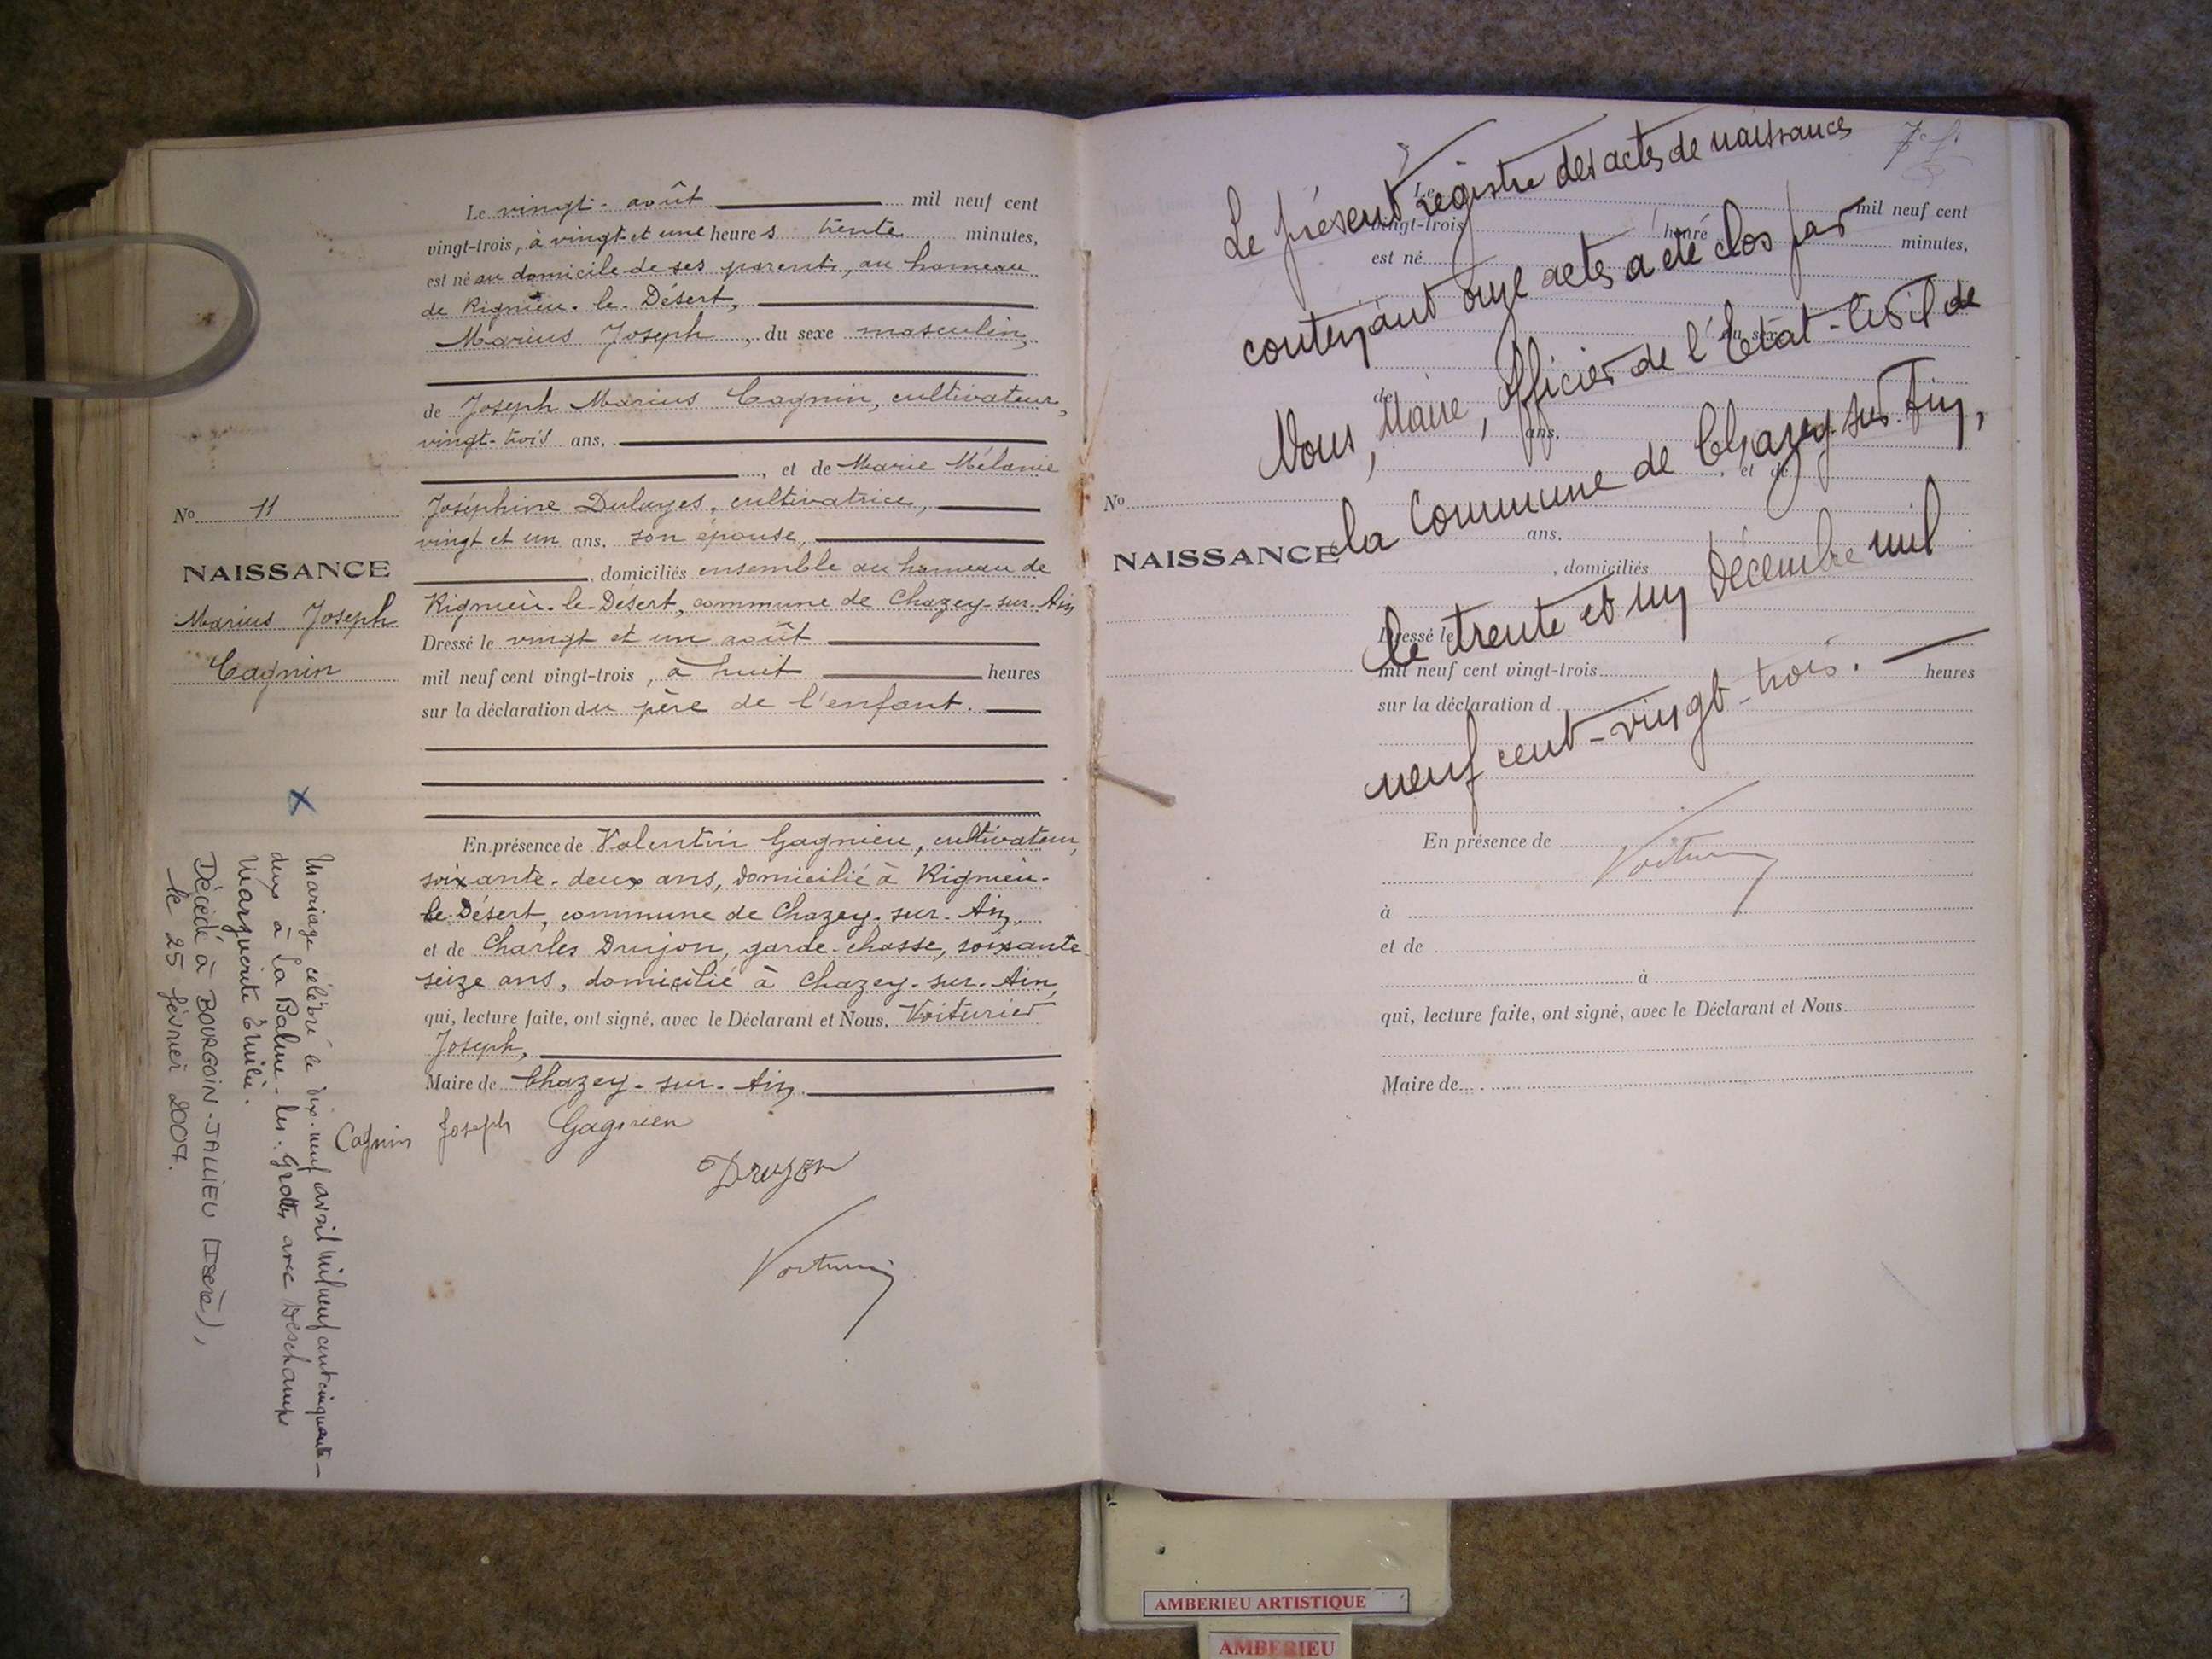 Le vingt-août mil neuf cent
vingt-trois, à vingt et une heures trente minutes,
est né au domicile de ses parents, au hameau
de Rignieu-le-Désert,
Marius Joseph, du sexe masculin,
de Joseph Marius Cagnin, cultivateur,
vingt-trois ans,
, et de Marie Mélanie
Joséphine Duluyes, cultivatrice,
vingt et un ans, son épouse,
, domiciliés ensemble au hameau de
Rignieu-le-Désert, commune de Chazey-sur-Ain
Dressé le vingt et un août
mil neuf cent vingt-trois, à huit heures
sur la déclaration du père de l'enfant.
En présence de Valentin Gagnieu, cultivateur,
soixante-deux ans, domicilié à Rignieu-
le-Désert, commune de Chazey-sur-Ain,
et de Charles Drujon, garde-chasse, soixante
seize ans, domicilié à Chazey-sur-Ain,
qui, lecture faite, ont signé, avec le Déclarant et Nous, Voiturier
Joseph,
Maire de Chazey-sur-Ain,
Cagnin Joseph Gagnieu
Drujon
Voiturier
No 11
NAISSANCE
Marius Joseph
Cagnin
X
Mariage célébré le dix-neuf avril mil neuf cent cinquante-
deux à La Balme-les-Grottes avec Deschamps
Marguerite Emilie.
Décédé à BOURGOIN-JALLIEU (Isère),
le 25 février 2007.
Le présent registre des actes de naissances
contenant onze actes a été clos par
Nous, Maire, Officier de l'Etat-Civil de
la Commune de Chazey-sur-Ain,
le trente et un Décembre mil
neuf cent-vingt-trois.
Voiturier
Le mil neuf cent
vingt-trois heure minutes,
est né
du sexe
de
ans,
, et de
No
ans,
NAISSANCE
, domiciliés
Dressé le
mil neuf cent vingt-trois heures
sur la déclaration d
En présence de
à
et de
à
qui, lecture faite, ont signé, avec le Déclarant et Nous
Maire de
AMBERIEU ARTISTIQUE
AMBERIEU